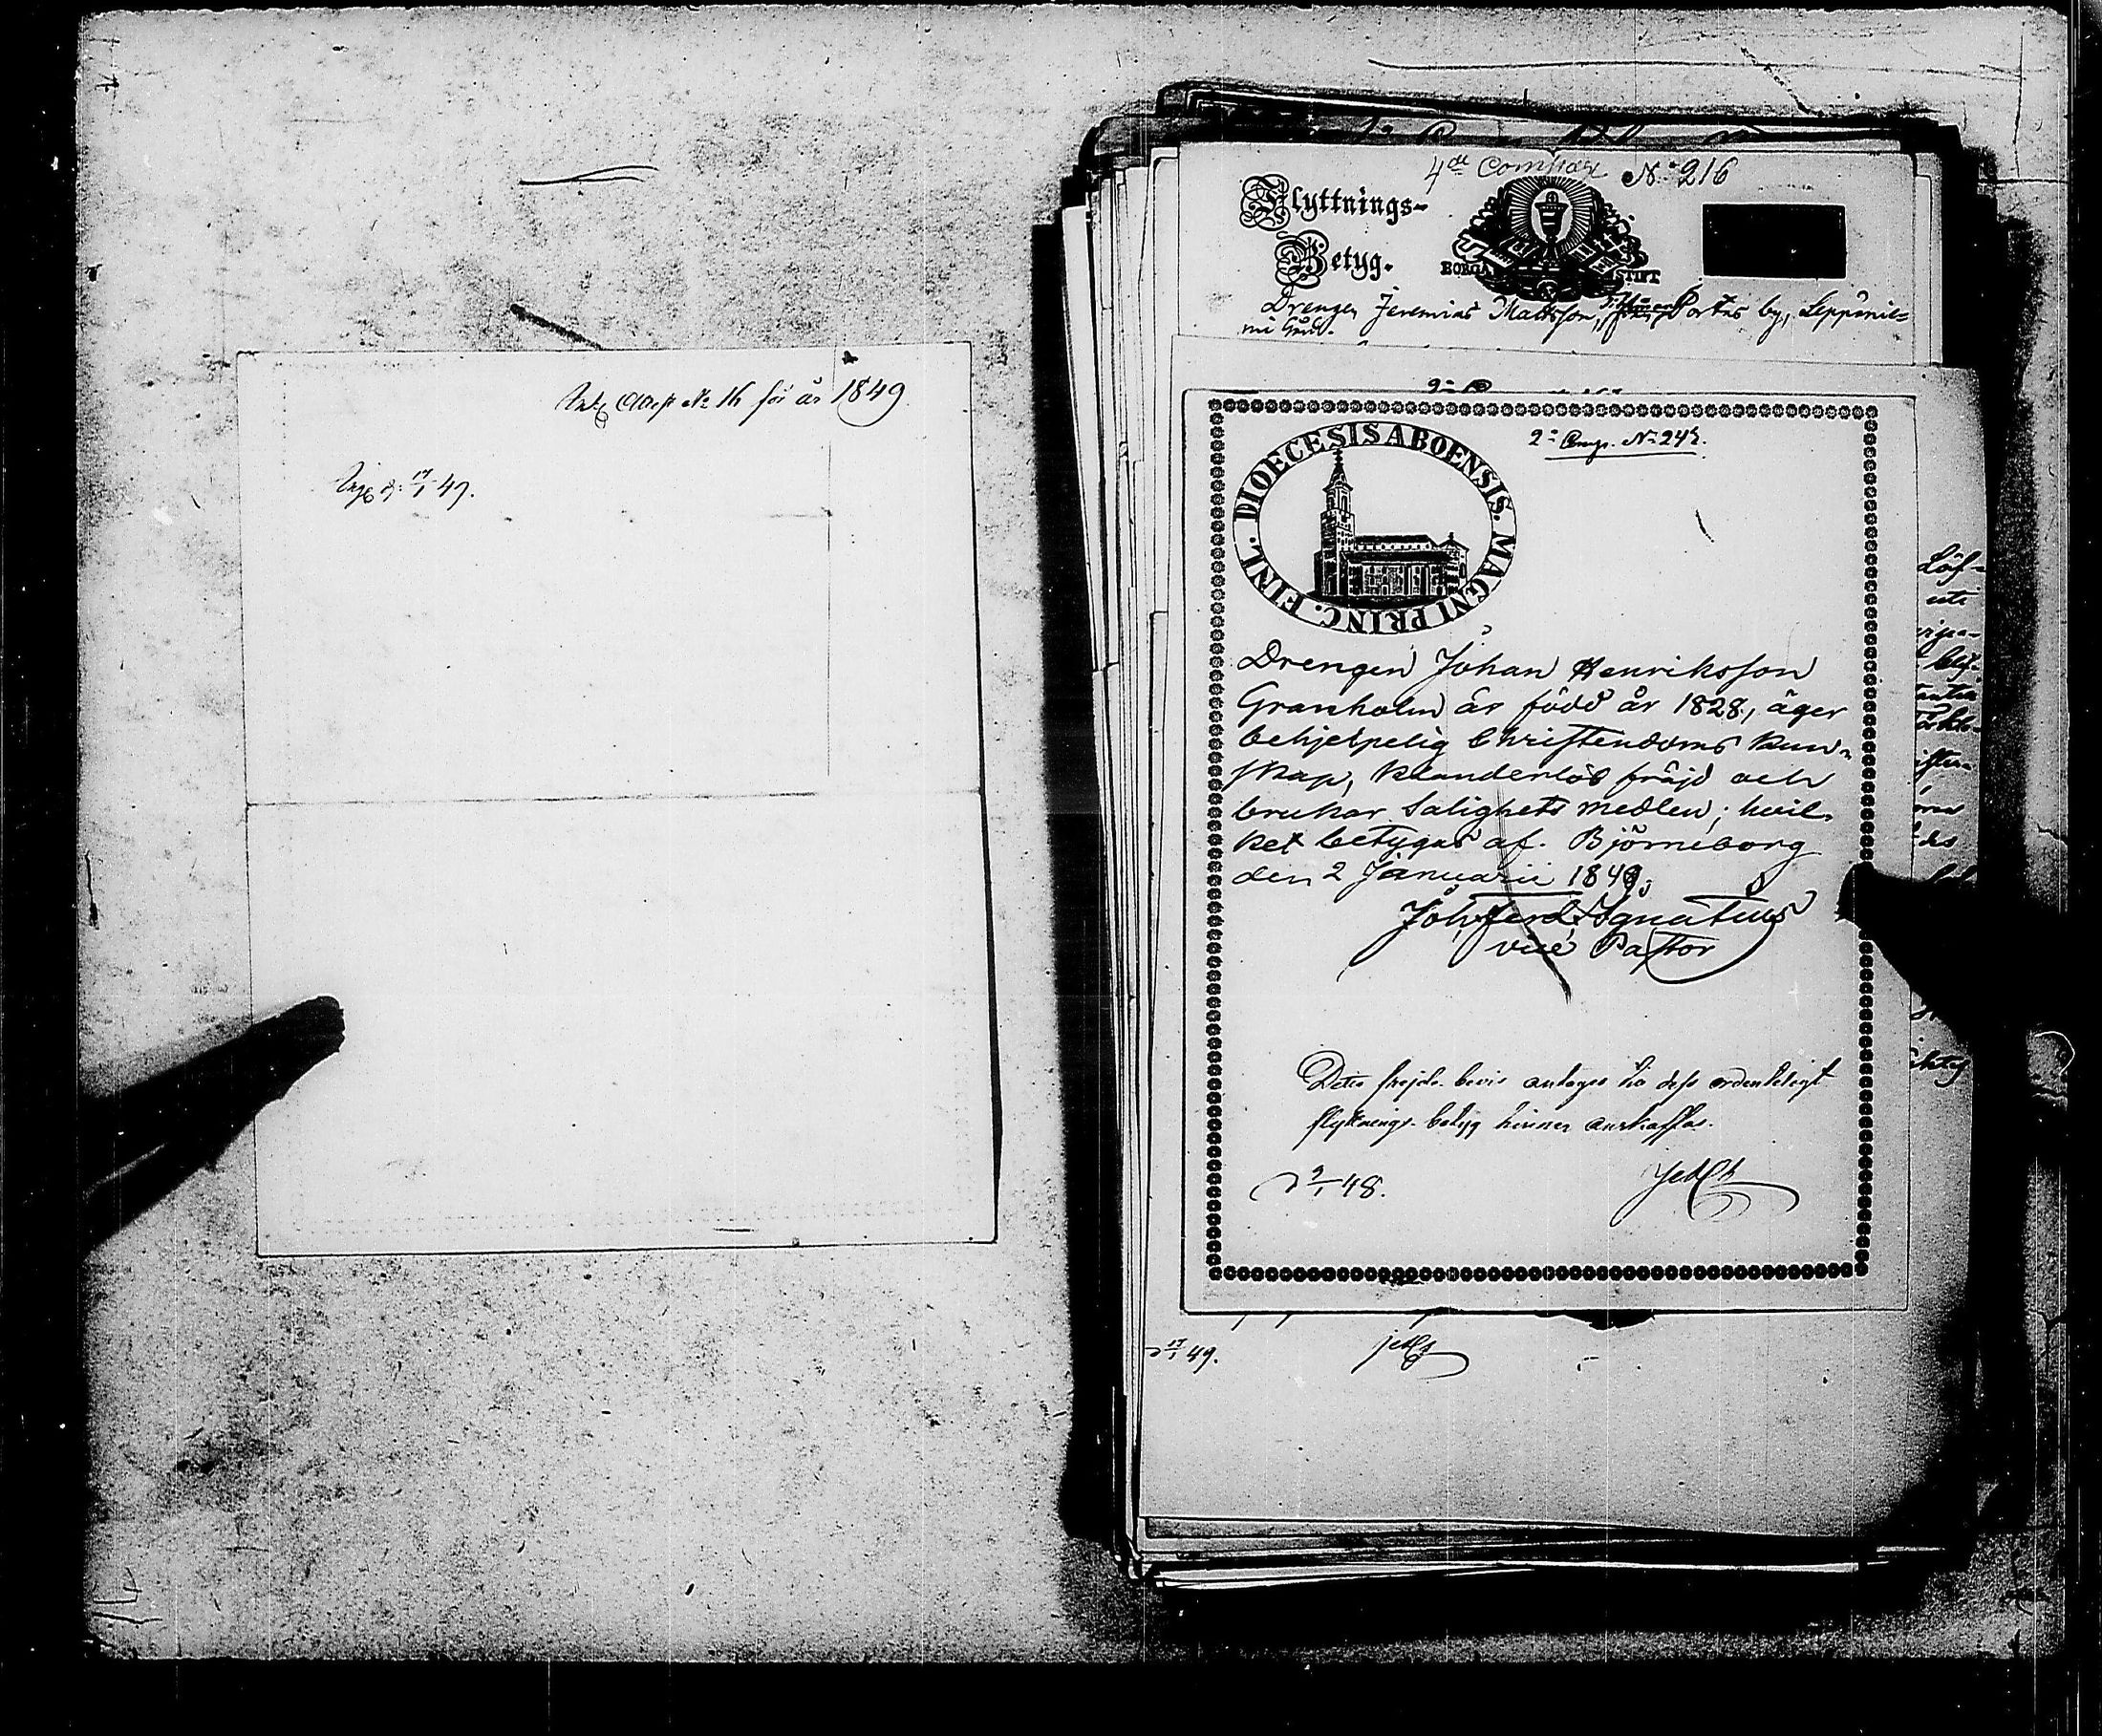 Attest No 16 för år 1849
17/1 49.
4de Comp. No 216
Flyttnings-
Betyg.
BORGÅ STIFT
Drengen Jeremias Mattsson, Portas by, Leppänie-
mi
2a Comp. No 245.
DIOECESIS ABOENSIS. MAGNI PRINC. FINL.
Drengen Johan Henriksson
Granholm är född år 1828, äger
behjelpelig Christendoms kun-
skap, klanderlös fräjd och
brukar Salighets medlen; hvil-
ket betygas af. Björneborg
den 2 Januarii 1849.
Joh. Ferd. Ignatius
vice Pastor
Detta frejde-bevis antages tio dess ordentligt
flyttnings-betyg hinner anskaffas.
D 9/1 48.
17/1 49.